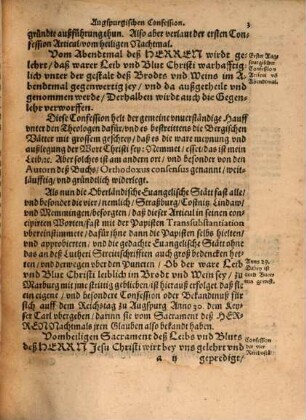 Augspurgischen Confession. 3
gründte außführung thun. Also aber verlaut der ersten Con-
fession Articul vom heiligen Nachtmal.
Vom Abendtmal deß HERREN wirdt ge-
lehrt / daß warer Leib vnd Blut Christ warhafftig-
lich vnter der gestalt deß Brodts vnd Weins im A-
bendtmal gegenwertig sey / vnd da außgetheilt vnd
genommen werde / Derhalben wirdt auch die Gegen-
lehr verworffen.
Erste Aug
spurgischer
Confession
Articul vom
Abendmal.
Diese Confession helt der gemeine vnuerständige Hauff
vnter den Theologen dafür / vnd es bestreittens die Bergischen
Vätter mit grossem geschrey / daß es die ware meynung vnd
außlegung der Wort Christi sey: Nemmet / esset / das ist mein
Leib / etc. Aber solches ist am andern ort / vnd besonder von den
Autorn deß Buchs / Orthodoxus consensus genannt / weit-
läufftig / vnd gründtlich widerlegt.
Als nun die Oberländische Euangelische Stätt fast alle /
vnd besonder die vier / nemlich / Straßburg / Costnitz / Lindaw /
vnd Memmingen / besorgten / daß dieser Articul in seinen con-
cipirten Worten / fast mit der Papisten Transsubstantiation
vbereinstimmete / dafür ihn dann die Papisten selbs hielten /
vnd approbierten / vnd die gedachte Euangelische Stätt ohne
das an deß Lutheri Streitschrifften auch groß bedencken het-
ten / vnd derwegen von dem Puncten / Ob der ware Leib
vnd Blut Christi leiblich im Brodt vnd Wein sey / zu
Marburg mit jme strittig geblieben / ist hierauß erfolgt / daß sie
ein eigene / vnd besondere Confession oder Bekandtnuß für
sich auff dem Reichstag zu Augspurg Anno 30. dem Key-
ser Carl vbergeben / darinn sie vom Sacrament deß HER-
REN Nachtmals jren Glauben also bekandt haben.
Anno 29.
Vom heiligen Sacrament deß Leibs vnd Bluts
deß HERRN Jesu Christi wirt bey vns gelehrt vnd
Confession
der vier
Reichsstätt
a ij gepredigt /